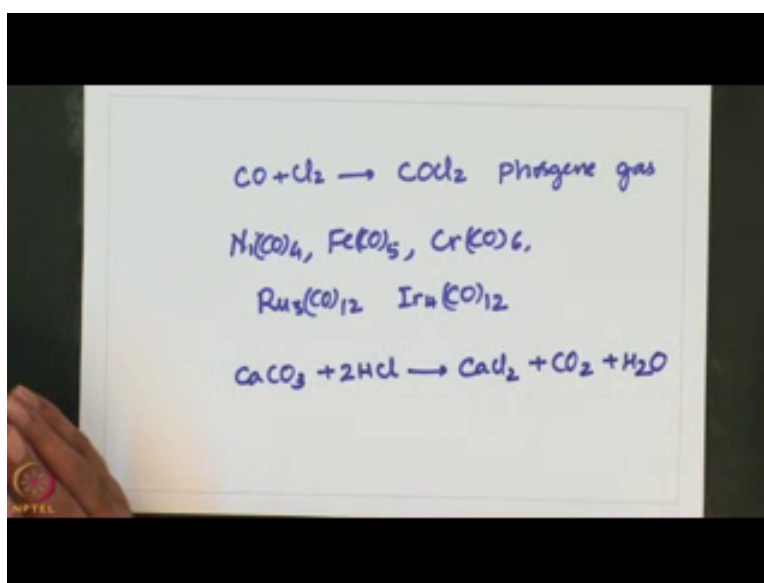 CO + Cl2 → COCl2 phosgene gas
Ni(CO)4, Fe(CO)5, Cr(CO)6,
Ru3(CO)12 Ir4(CO)12
CaCO3 + 2HCl → CaCl2 + CO2 + H2O
NPTEL